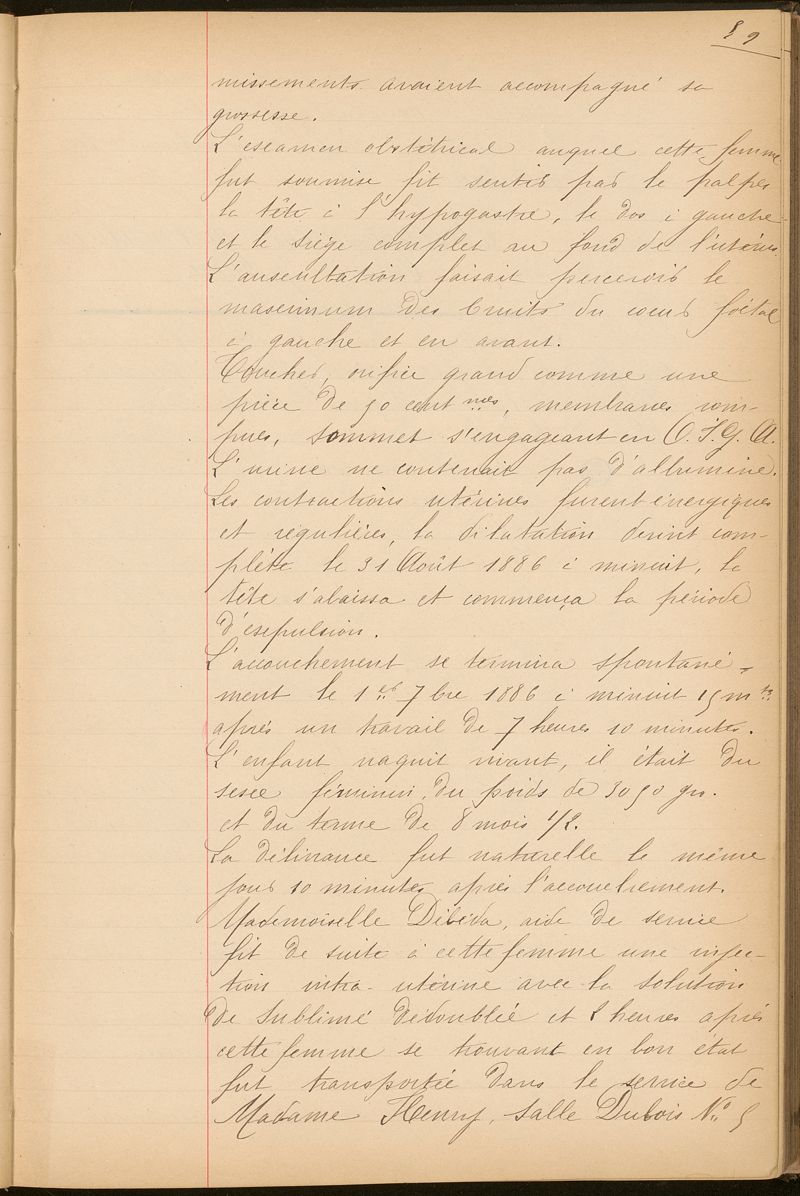 89
missements avaient accompagné sa
grossesse.
L'examen obstétrical auquel cette femme
fut soumise fit sentir par le palper
la tête à l'hypogastre, le dos à gauche
et le siège complet au fond de l'utérus.
L'auscultation faisait percevoir le
maximum des bruits du cœur fœtal
à gauche et en avant.
Toucher, orifice grand comme une
pièce de 50 cent mes, membranes rom-
pues, sommet s'engageant en O.I.G.A.
L'urine ne contenait pas d'albumine.
Les contractions utérines furent énergiques
et régulières, la dilatation devint com-
plète le 31 Août 1886 à minuit, la
tête s'abaissa et commença la période
d'expulsion.
L'accouchement se termina spontané-
ment le 1er 7bre 1886 à minuit 15 mtes
après un travail de 7 heures 10 minutes.
L'enfant naquit vivant, il était du
sexe féminin, du poids de 3050 grs.
et du terme de 8 mois 1/2.
La délivrance fut naturelle le même
jour 10 minutes après l'accouchement.
Mademoiselle Dibéda, aide de service
fit de suite à cette femme une injec-
tion intra-utérine avec la solution
de sublimé dédoublée et 2 heures après
cette femme se trouvant en bon état
fut transportée dans le service de
Madame Henry, salle Dubois No 5